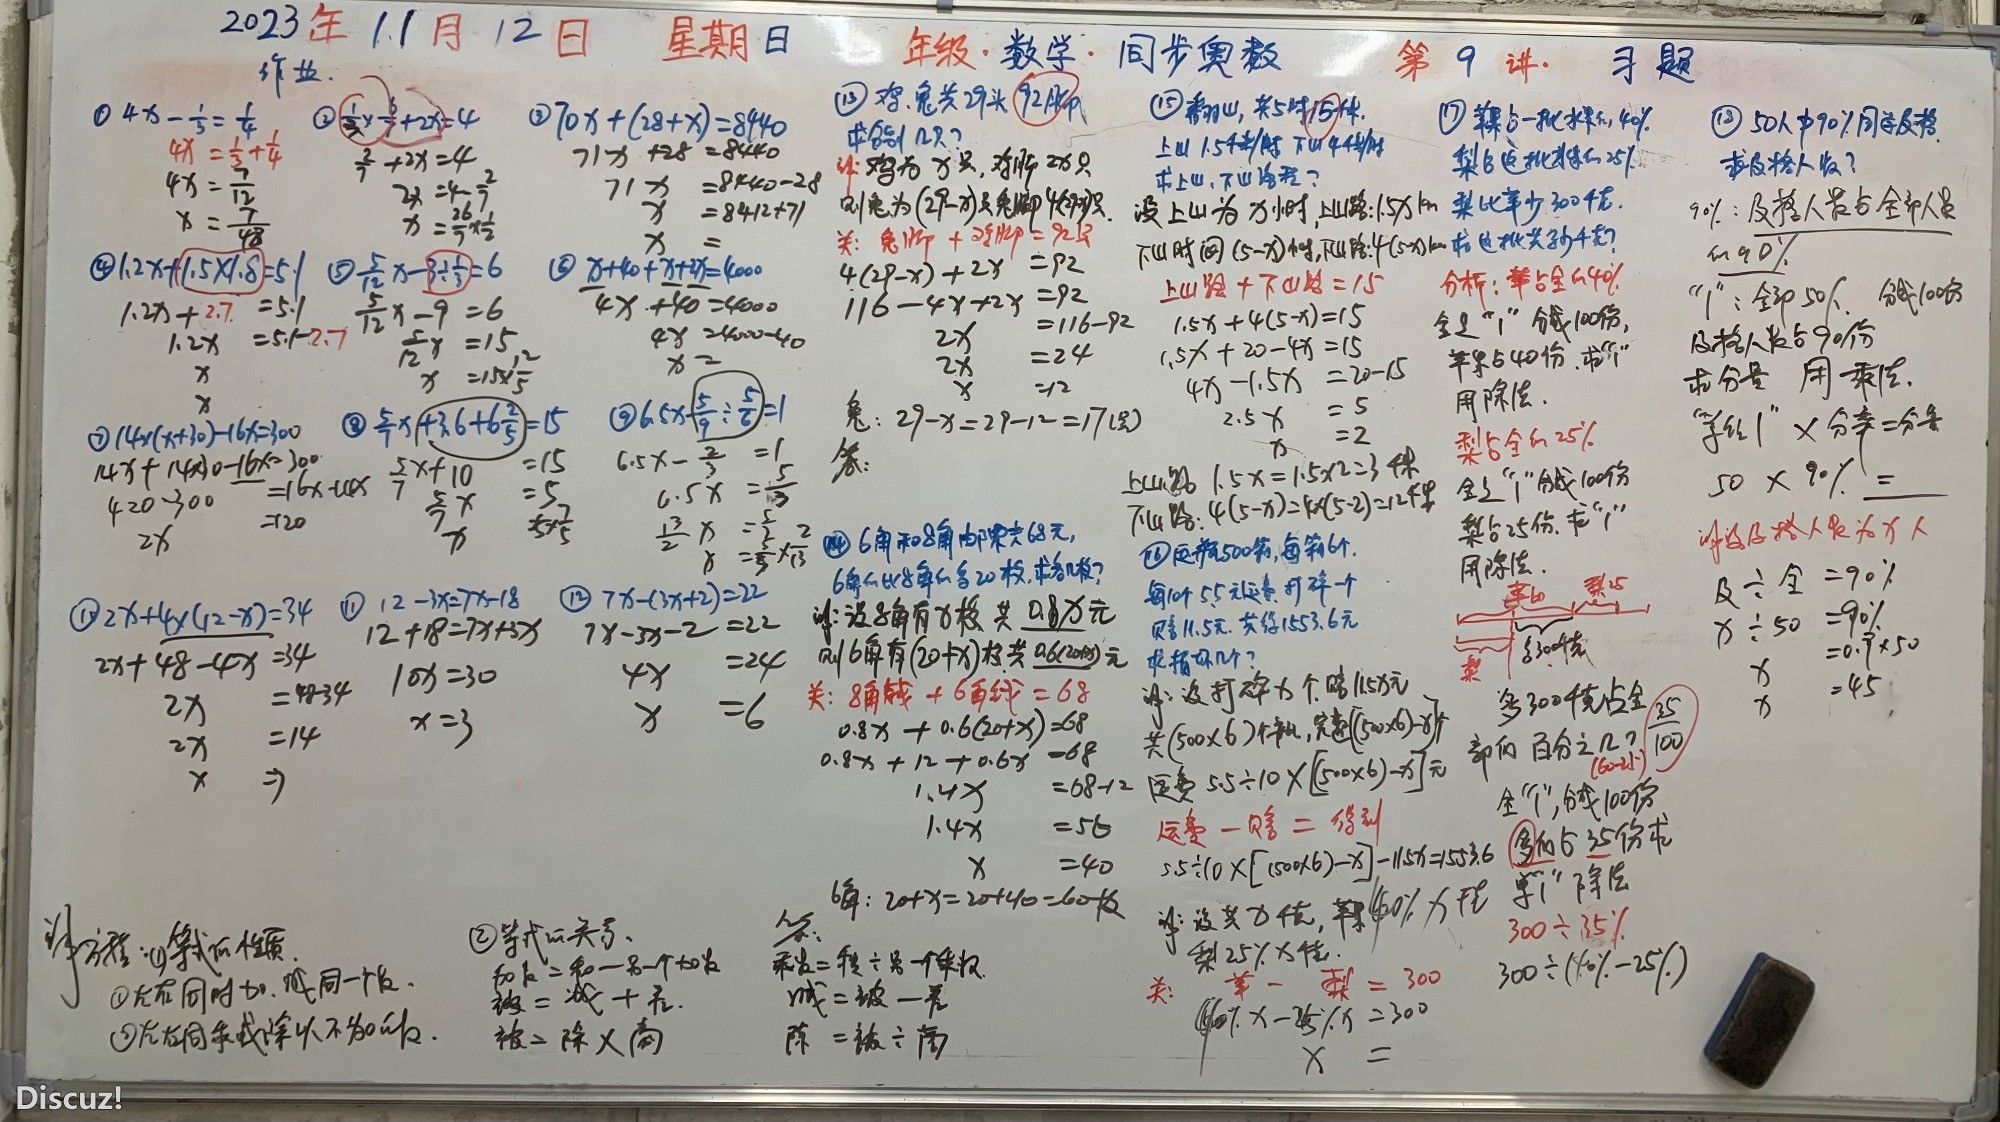 2023年11月12日 星期日 年级·数学·同步奥数 第9讲·习题
作业.
① 4x-1/3=1/4
4x=1/3+1/4
4x=7/12
x=7/48
② 1/3×6/7+2x=4
2/7+2x=4
2x=4-2/7
x=26/7×1/2
③ 70x+(28+x)=8440
71x+28=8440
71x=8440-28
x=8412÷71
x=
④ 1.2x+1.5×1.8=5.1
1.2x+2.7=5.1
1.2x=5.1-2.7
x
x
⑤ 5/12x-3÷1/3=6
5/12x-9=6
5/12x=15
x=15×12/5
⑥ x+40+x+2x=4000
4x+40=4000
4x=4000-40
x=
⑦ 14×(x+30)-16x=300
14x+14×30-16x=300
420-300=16x-14x
2x=120
⑧ 5/7x+3.6+6 2/5=15
5/7x+10=15
5/7x=5
x 5×7/5
⑨ 6.5x-5/9÷5/6=1
6.5x-2/3=1
6.5x=5/3
13/2x=5/3
x=5/3×2/13
⑩ 2x+4×(12-x)=34
2x+48-4x=34
2x=48-34
2x=14
x=7
⑪ 12-3x=7x-18
12+18=7x+3x
10x=30
x=3
⑫ 7x-(3x+2)=22
7x-3x-2=22
4x=24
x=6
⑬ 鸡、兔共29头 92脚
求各别几只?
解:鸡为x只,鸡脚2x只
则兔为(29-x)只兔脚4(29-x)只.
关:兔脚+鸡脚=92只
4(29-x)+2x=92
116-4x+2x=92
2x=116-92
2x=24
x=12
兔:29-x=29-12=17(只)
答:
⑭ 6角和8角邮票共68元,
6角的比8角的多20枚,求各几枚?
解:设8角有x枚 共0.8x元
则6角有(20+x)枚共0.6(20+x)元
关:8角钱+6角钱=68
0.8x+0.6(20+x)=68
0.8x+12+0.6x=68
1.4x=68-12
1.4x=56
x=40
6角:20+x=20+40=60枚
答:
⑮ 翻山,共5时15千米.
上山1.5千米/时 下山4千米/时
求上山、下山路程?
设上山为x小时,上山路:1.5x km
下山时间(5-x)小时,下山路:4(5-x)km
上山路+下山路=15
1.5x+4(5-x)=15
1.5x+20-4x=15
4x-1.5x=20-15
2.5x=5
x=2
上山路 1.5x=1.5×2=3千米
下山路:4(5-x)=4×(5-2)=12千米
⑯ 运瓶500箱,每箱6个.
每10个5.5元运费,打碎一个
赔11.5元.共得1553.6元
求损坏几个?
解:设打碎x个 赔11.5x元
共(500×6)个,完整[(500×6)-x]个
运费5.5÷10×[(500×6)-x]元
运费-赔=得到
5.5÷10×[(500×6)-x]-11.5x=1553.6
解:设共x千克,苹果40%x千克
梨25%x千克.
关:苹-梨=300
40%x-25%x=300
x=
⑰ 苹果占一批水果的40%
梨占这批水果的25%
梨比苹少300千克.
求这批共多少千克?
分析:苹占全的40%
全是“1”分成100份,
苹果占40份.求“1”
用除法.
梨占全的25%
全是“1”分成100份
梨占25份.求“1”
用除法.
苹60 梨25
多300千克
梨
多300千克占全
部的百分之几? 35/100
(60-25)
全“1”,分成100份
多的占35份求
单“1”除法
300÷35%
300÷(40%-25%)
⑱ 50人中90%同学及格.
求及格人数?
90%:及格人数占全部人数
的90%
“1”:全部50人 分成100份
及格人数占90份
求分量 用乘法.
“单位1”×分率=分量
50×90%=
解设及格人数为x人
及÷全=90%
x÷50=90%
x=0.9×50
x=45
解方程:(1)等式的性质.
①左右同时加、减同一个数.
②左右同乘或除以不为0的数.
②等式的关系.
加数=和-另一个加数
被=减+差.
被=除×商
乘数=积÷另一个乘数.
减=被-差
除=被÷商
Discuz!